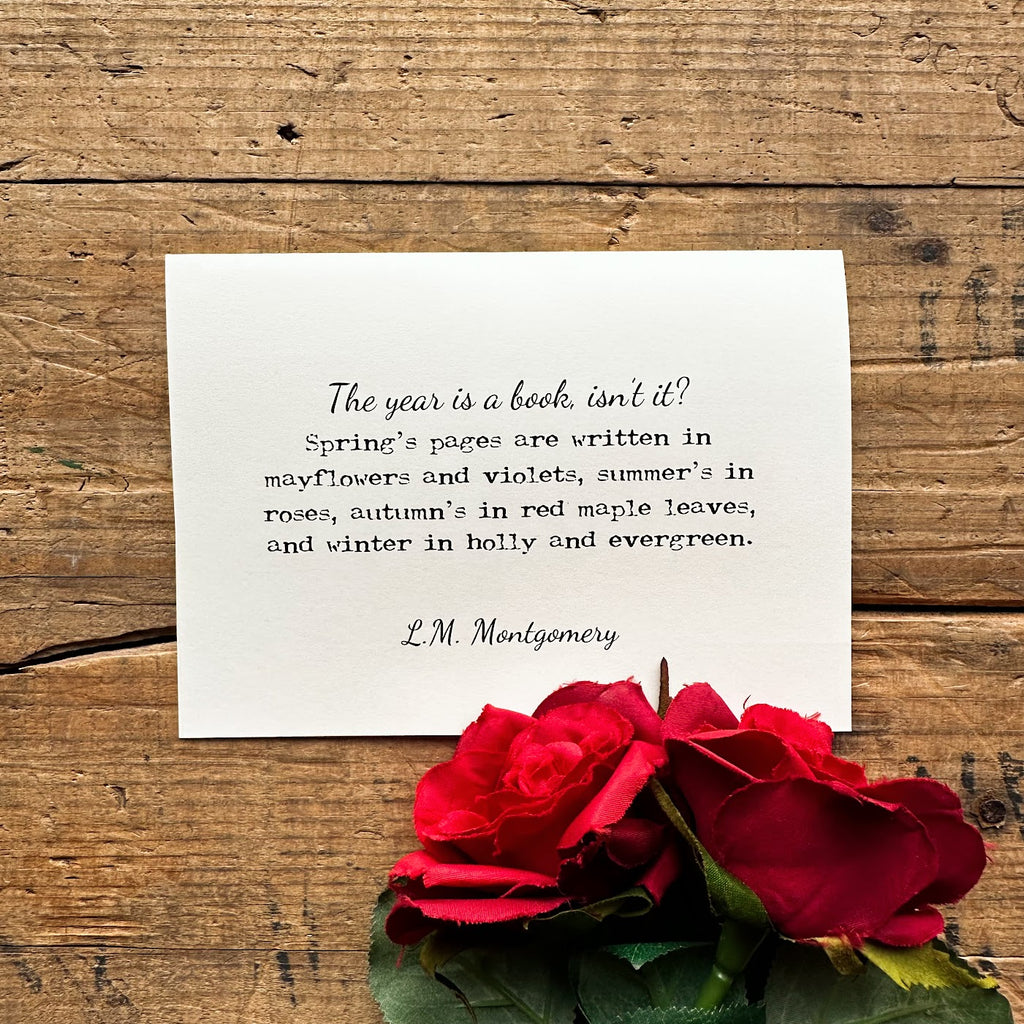 The year is a book, isn't it?
Spring's pages are written in
mayflowers and violets, summer's in
roses, autumn's in red maple leaves,
and winter in holly and evergreen.
L.M. Montgomery